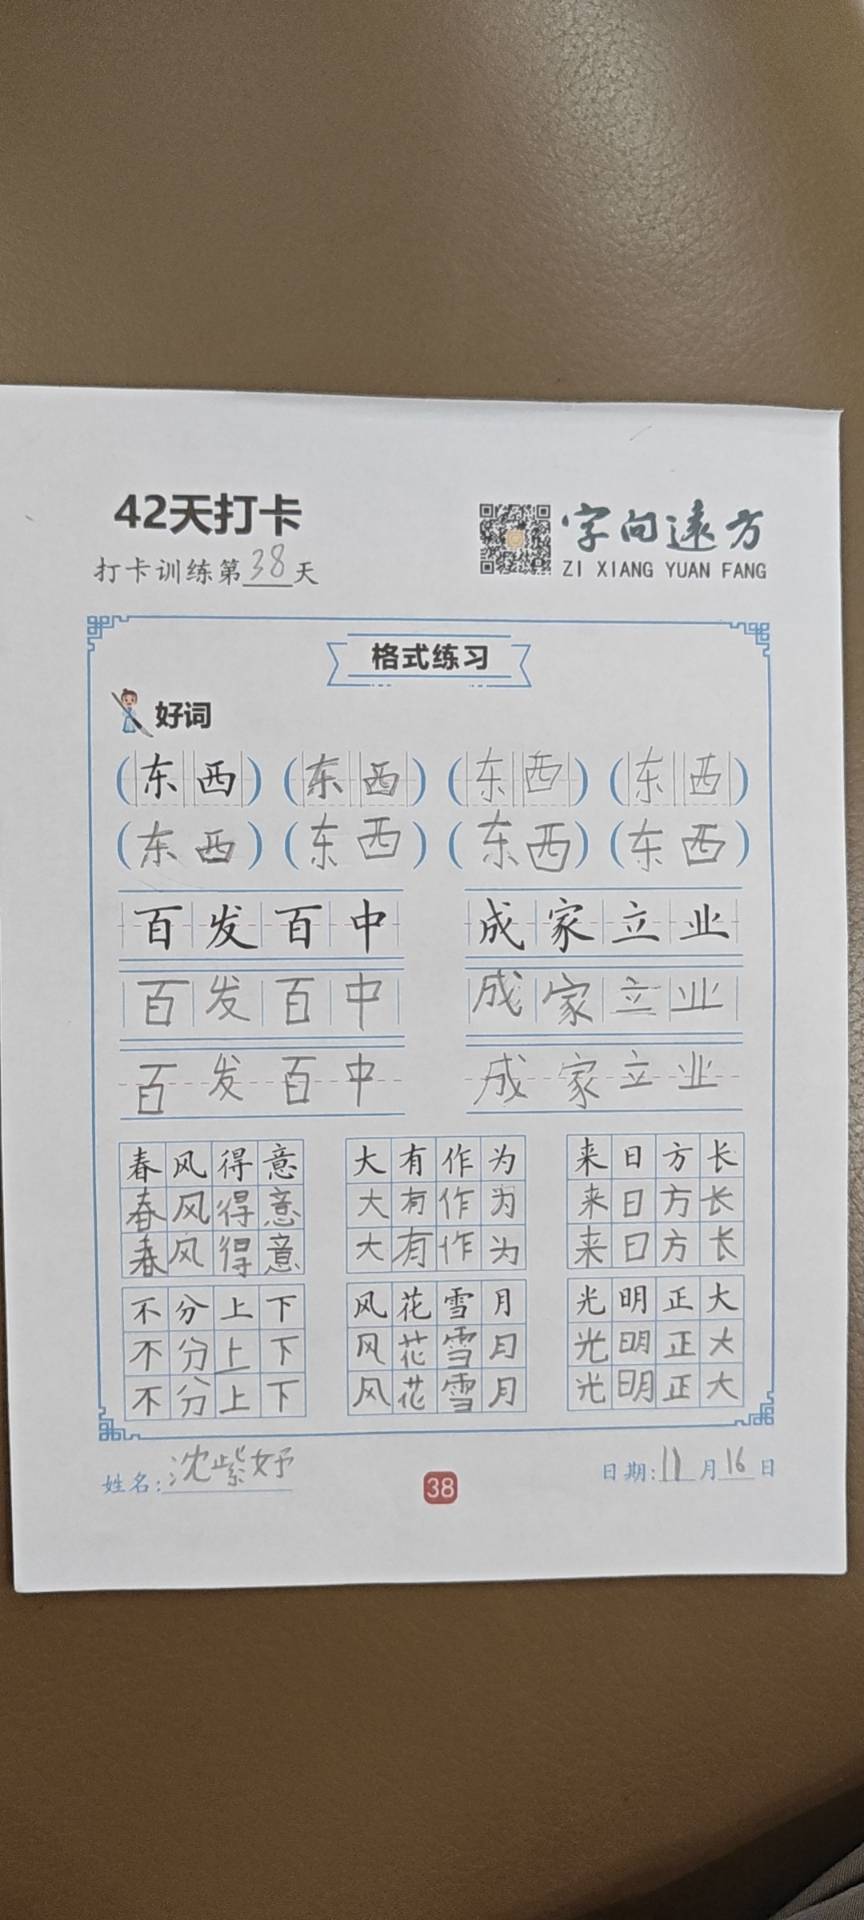 42天打卡
字向远方
打卡训练第38天
ZI XIANG YUAN FANG
格式练习
好词
(东西) (东西) (东西) (东西)
(东西) (东西) (东西) (东西)
百发百中 成家立业
百发百中 成家立业
百发百中 成家立业
春风得意 大有作为 来日方长
春风得意 大有作为 来日方长
春风得意 大有作为 来日方长
不分上下 风花雪月 光明正大
不分上下 风花雪月 光明正大
不分上下 风花雪月 光明正大
姓名:沈紫妤 38 日期:11月16日